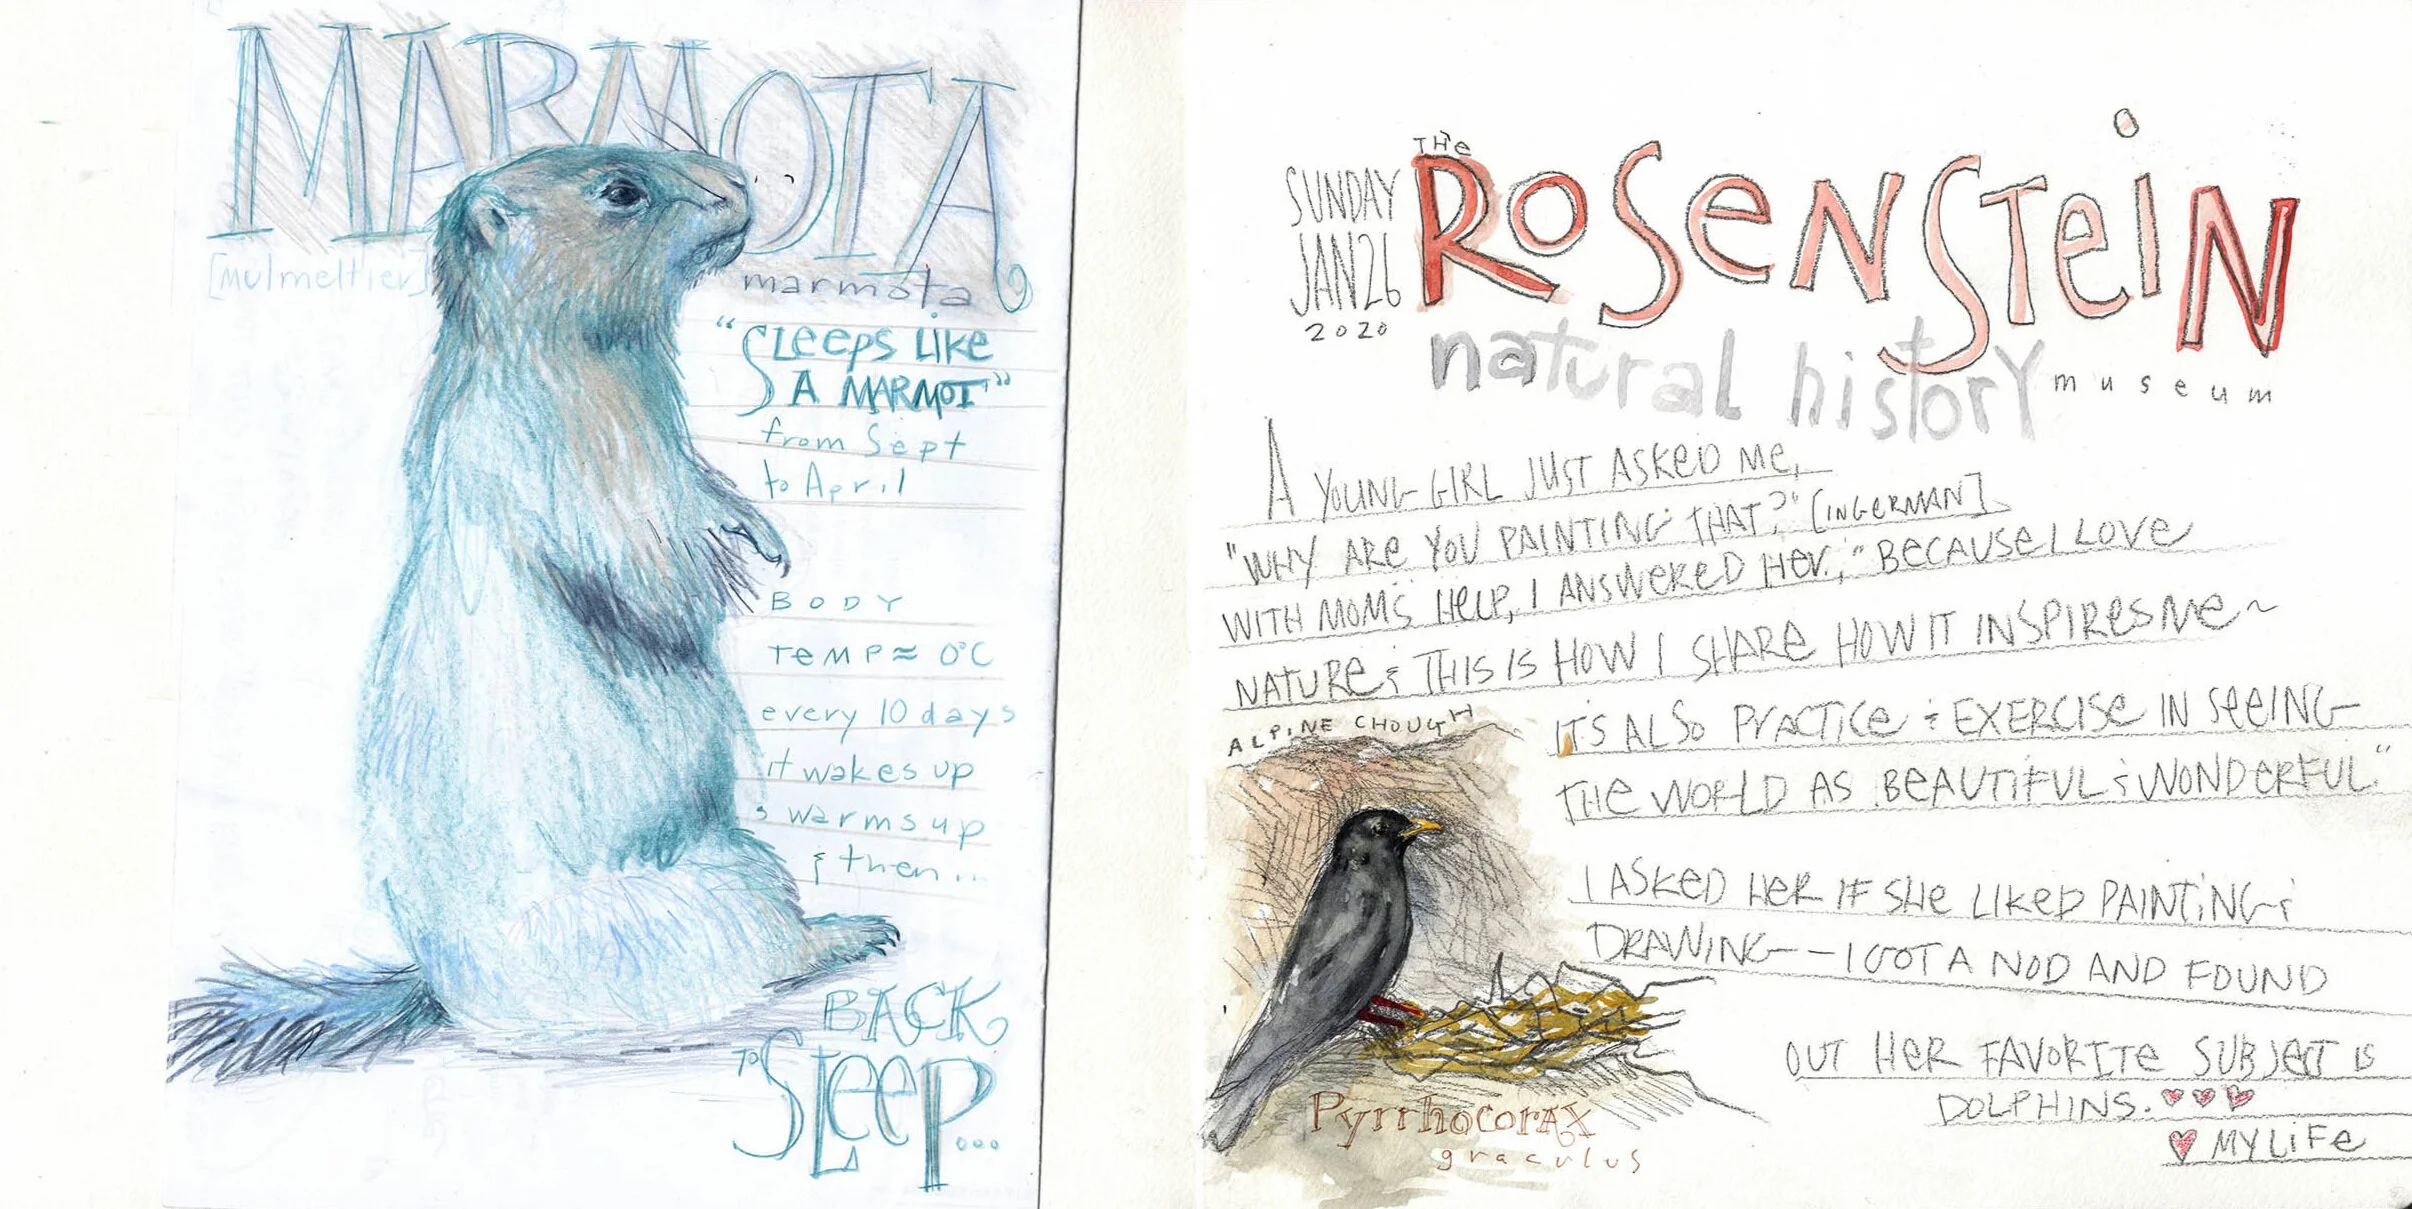 MARMOTA
[Mulmeltier]
marmota
"SLeePS LIKe
A MARMOT"
from Sept
to April
BODY
TeMP ≈ 0°C
every 10 days
it wakes up
& warms up
& then...
BACK
TO SLeeP...
THe
SUNDAY
JAN 26
2020
ROSeNSTeiN
natural history
museum
A YOUNG GIRL JUST ASKeD Me,
"WHY ARe YOU PAINTING THAT?" [IN GeRMAN]
WITH MOM'S HeLP, I ANSWeReD HeR, "BeCAUSe I LOVe
NATURe & THIS IS HOW I SHARe HOW IT INSPIReS Me ~
IT'S ALSO PRACTICe & EXERCISe IN SeeING
THe WORLD AS BeAUTIFUL & WONDeRFUL."
ALPINE CHOUGH
I ASKeD HeR IF SHe LIKeD PAINTiNG &
DRAWiNG — I GOT A NOD AND FOUND
OUT HeR FAVORITe SUBJeCT IS
DOLPHINS. ♥♥♥
♥ MY LiFe
Pyrrhocorax
graculus